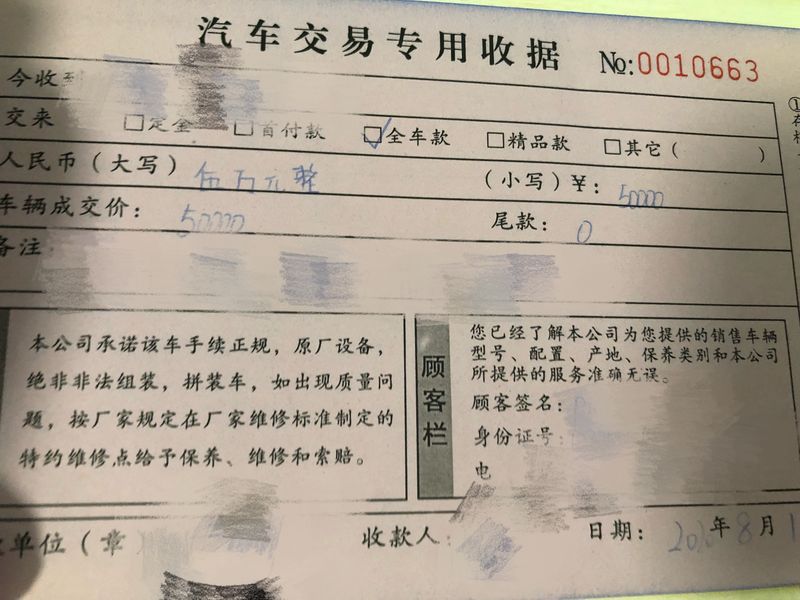 汽车交易专用收据 No:0010663
今收到
交来 □定金 □首付款 ☑全车款 □精品款 □其它( )
人民币(大写) 伍万元整 (小写)¥: 50000
车辆成交价: 50000 尾款: 0
备注
本公司承诺该车手续正规，原厂设备，
绝非非法组装，拼装车，如出现质量问
题，按厂家规定在厂家维修标准制定的
特约维修点给予保养、维修和索赔。
顾客栏
您已经了解本公司为您提供的销售车辆
型号、配置、产地、保养类别和本公司
所提供的服务准确无误。
顾客签名:
身份证号:
电
单位(章) 收款人: 日期: 年8月1